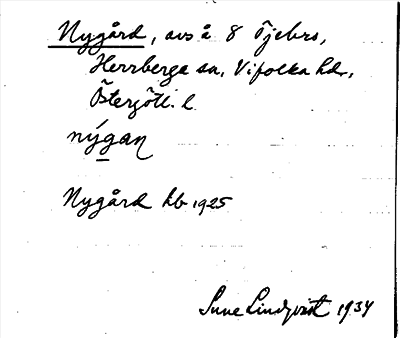 Nygård, avs å 8 Öjebro,
Herrberga sn, Vifolka hd,
Östergötl. l
nýgan
Nygård hb 1925
Sune Lindqvist 1934